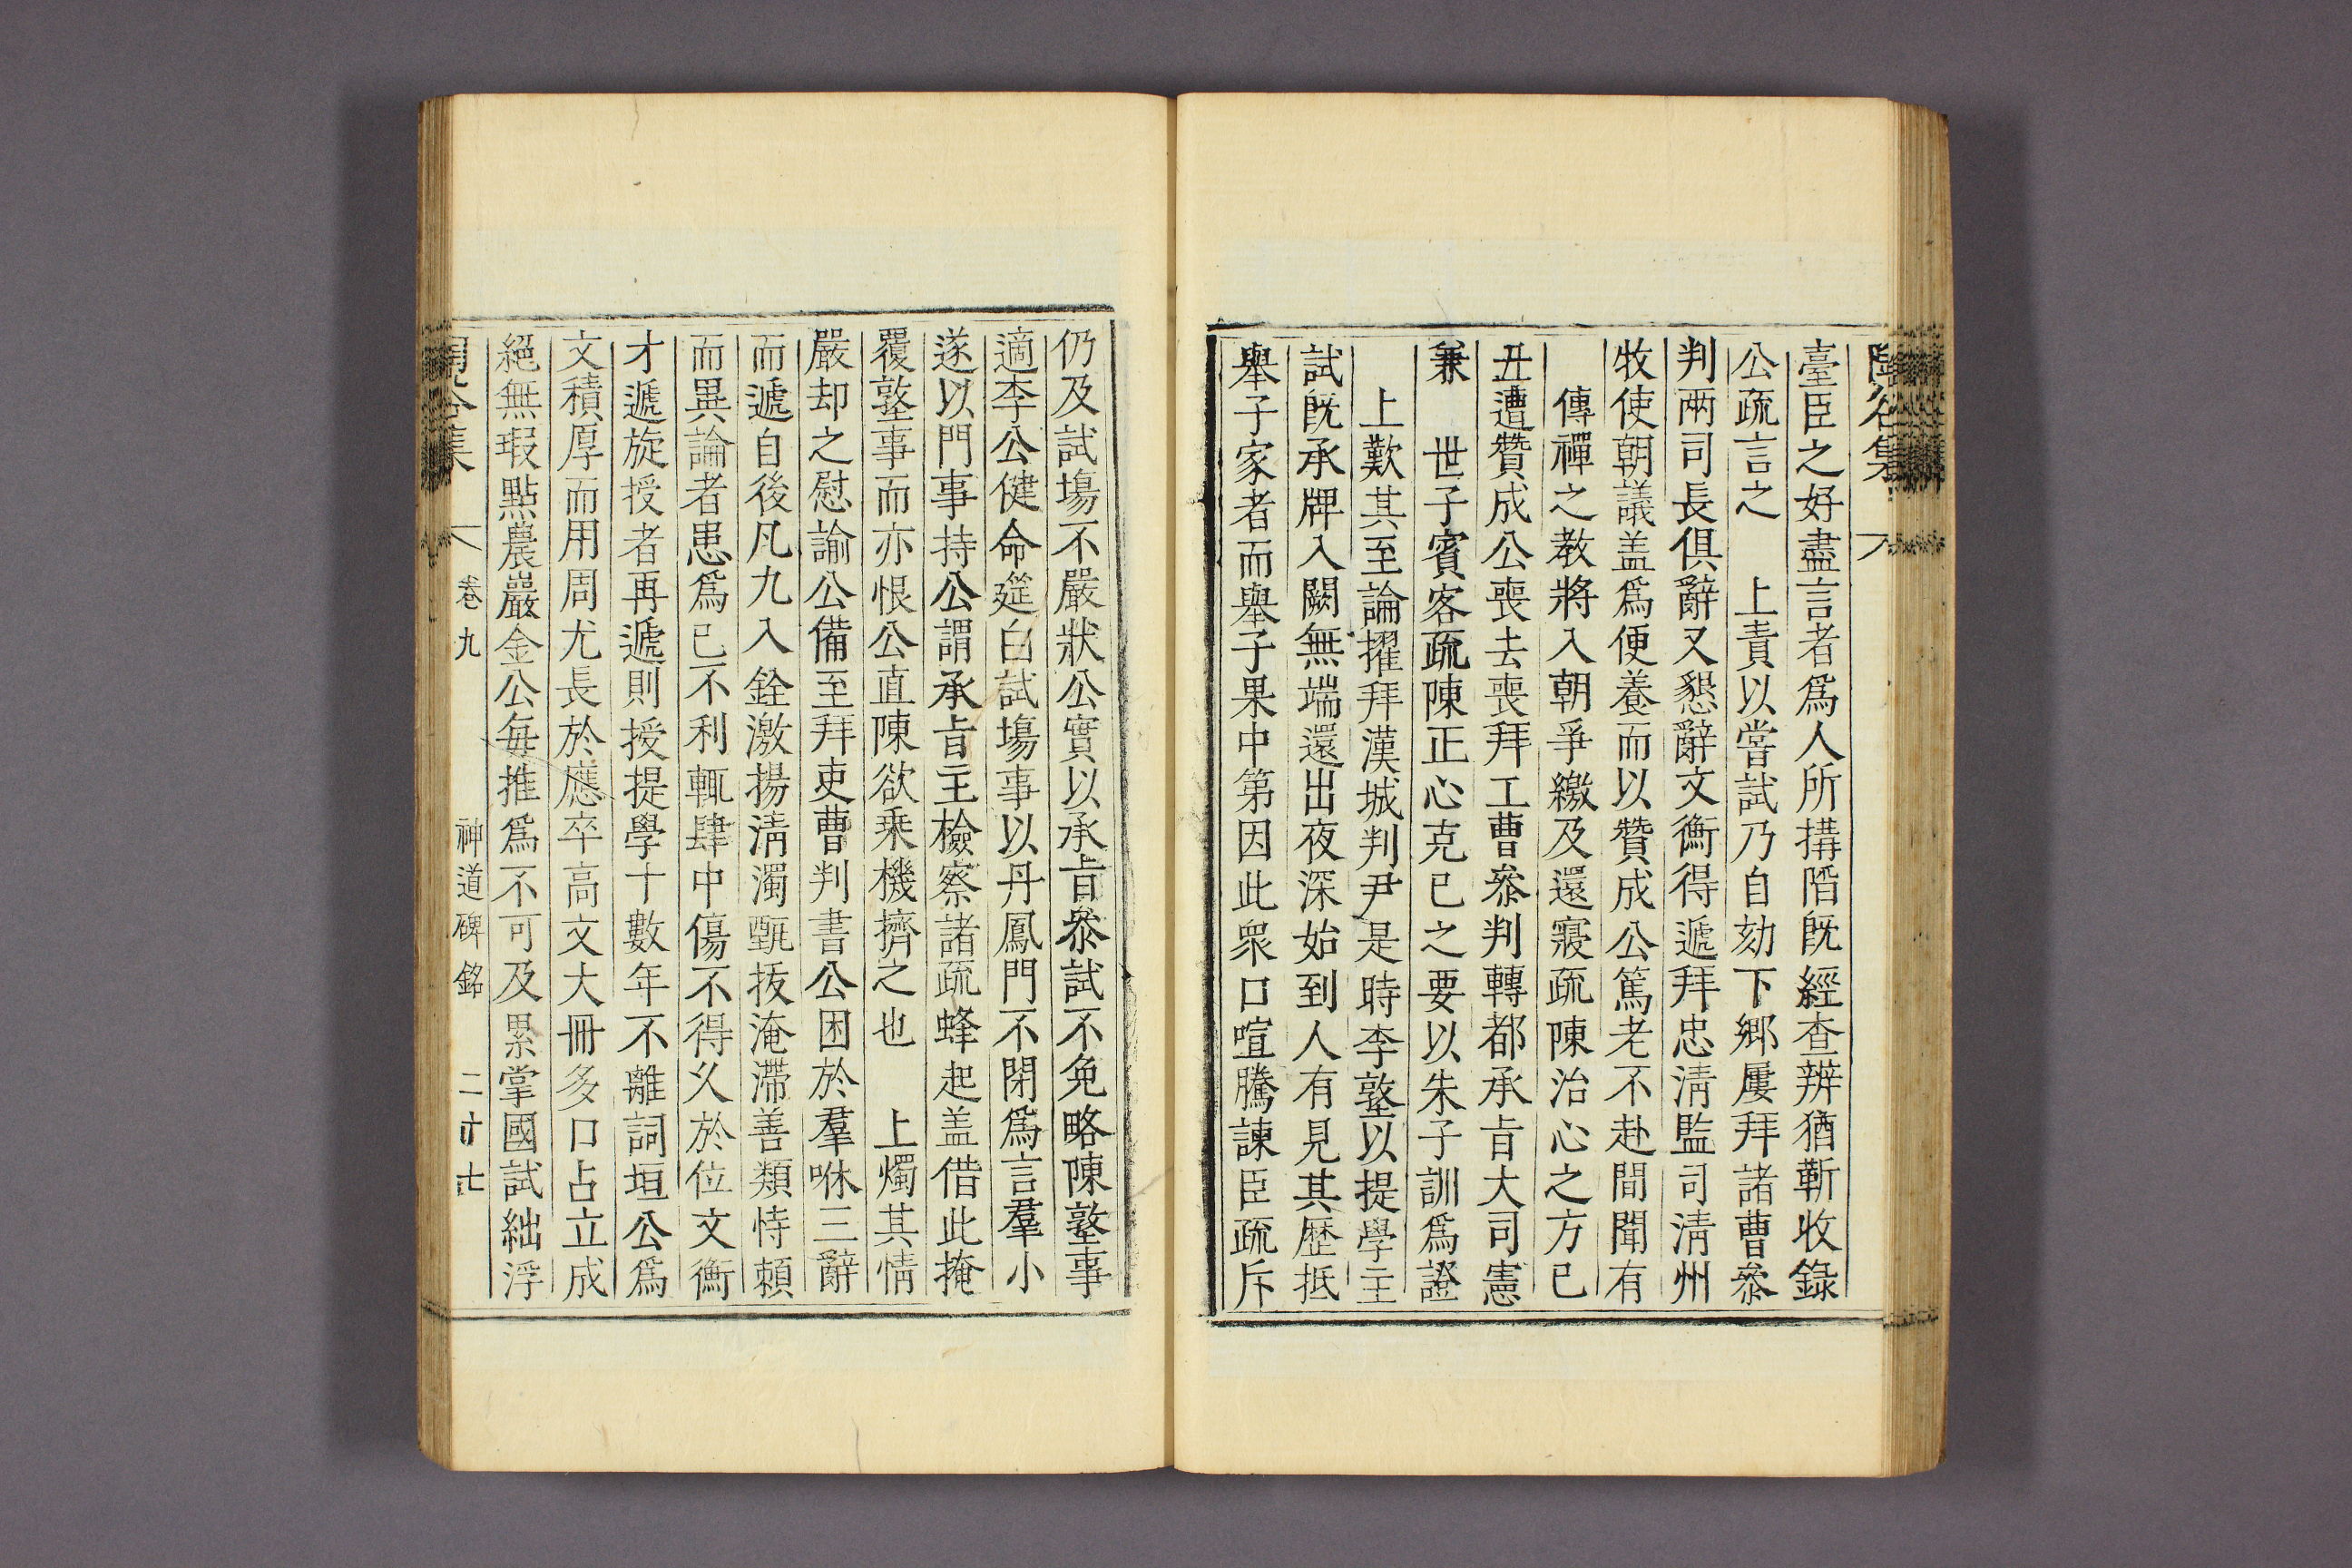 臺臣之好盡言者爲人所搆陷旣經查辨猶靳收錄
公疏言之　上責以嘗試乃自劾下鄕屢拜諸曹叅
判兩司長俱辭又懇辭文衡得遞拜忠淸監司淸州
牧使朝議盖爲便養而以贊成公篤老不赴間聞有
傳禪之教將入朝爭繳及還寢疏陳治心之方已
丑遭贊成公喪去喪拜工曹叅判轉都承旨大司憲
兼　世子賓客疏陳正心克己之要以朱子訓爲證
上歎其至論擢拜漢城判尹是時李墪以提學主
試旣承牌入闕無端還出夜深始到人有見其歷抵
舉子家者而舉子果中第因此衆口喧騰諫臣疏斥
仍及試塲不嚴狀公實以承旨叅試不免略陳墪事
適李公健命筵白試塲事以丹鳳門不閉爲言羣小
遂以門事持公謂承旨主檢察諸疏蜂起盖借此掩
覆墪事而亦恨公直陳欲乘機擠之也　上燭其情
嚴却之慰諭公備至拜吏曹判書公困於羣咻三辭
而遞自後凡九入銓激揚淸濁甄拔淹滯善類恃賴
而異論者患爲已不利輒肆中傷不得久於位文衡
才遞旋授者再遞則授提學十數年不離詞垣公爲
文積厚而用周尤長於應卒高文大冊多口占立成
絕無瑕點農巖金公每推爲不可及累掌國試絀浮
卷九　神道碑銘　二十七